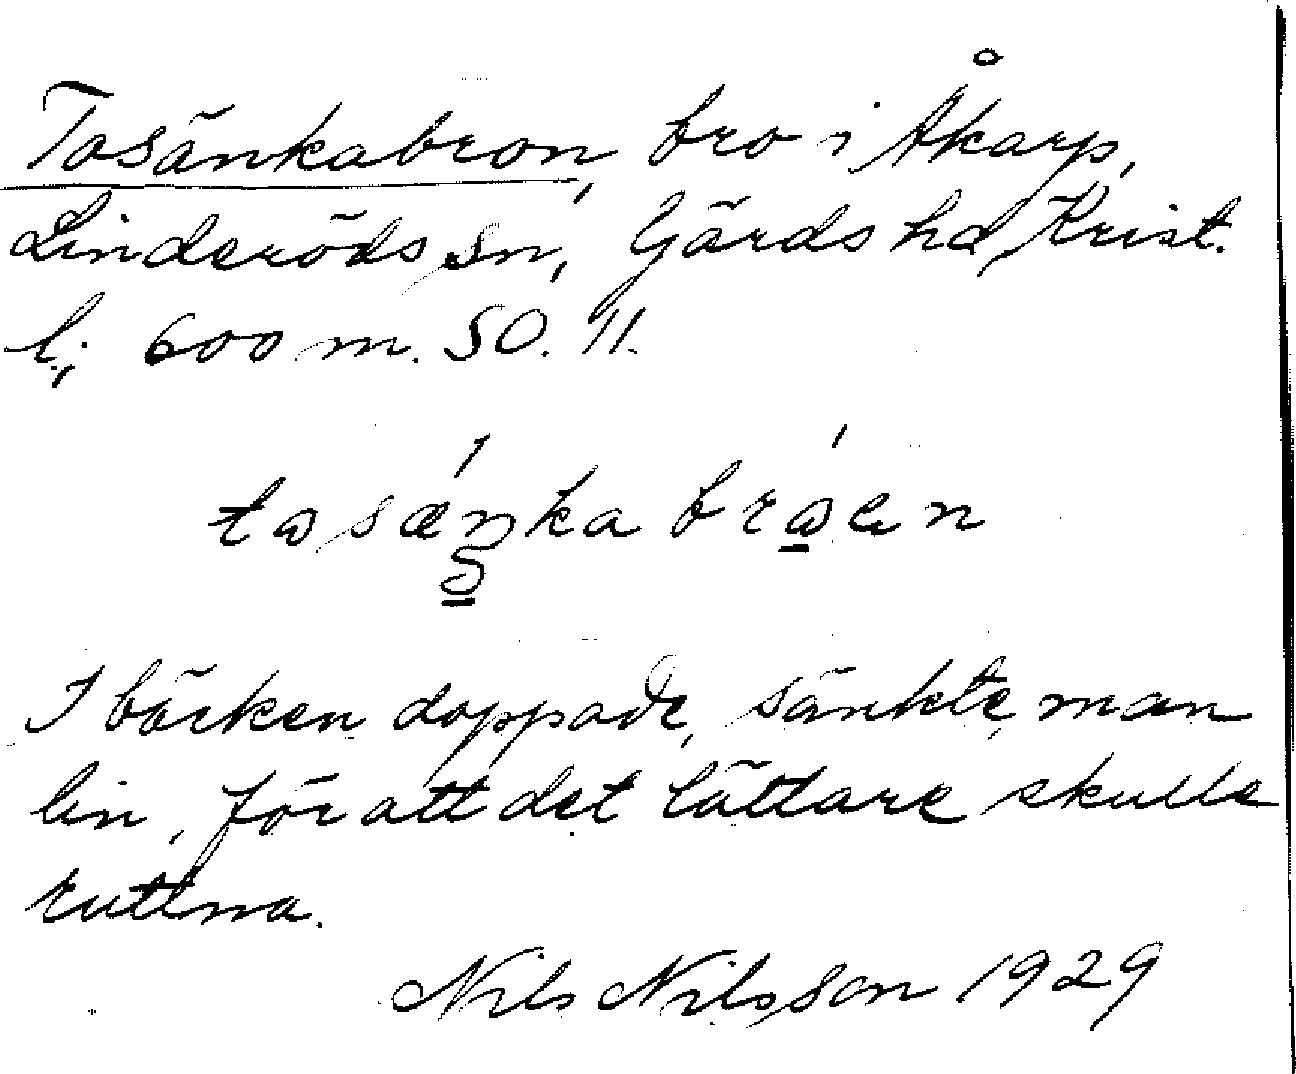 Tosänkabron, bro i Åkarp,
Linderöds sn, Gärds hd, Krist.
l.; 600 m. SO. 11.
tosænka broen
I bäcken doppade, sänkte man
lin, för att det lättare skulle
ruttna.
Nils Nilsson 1929